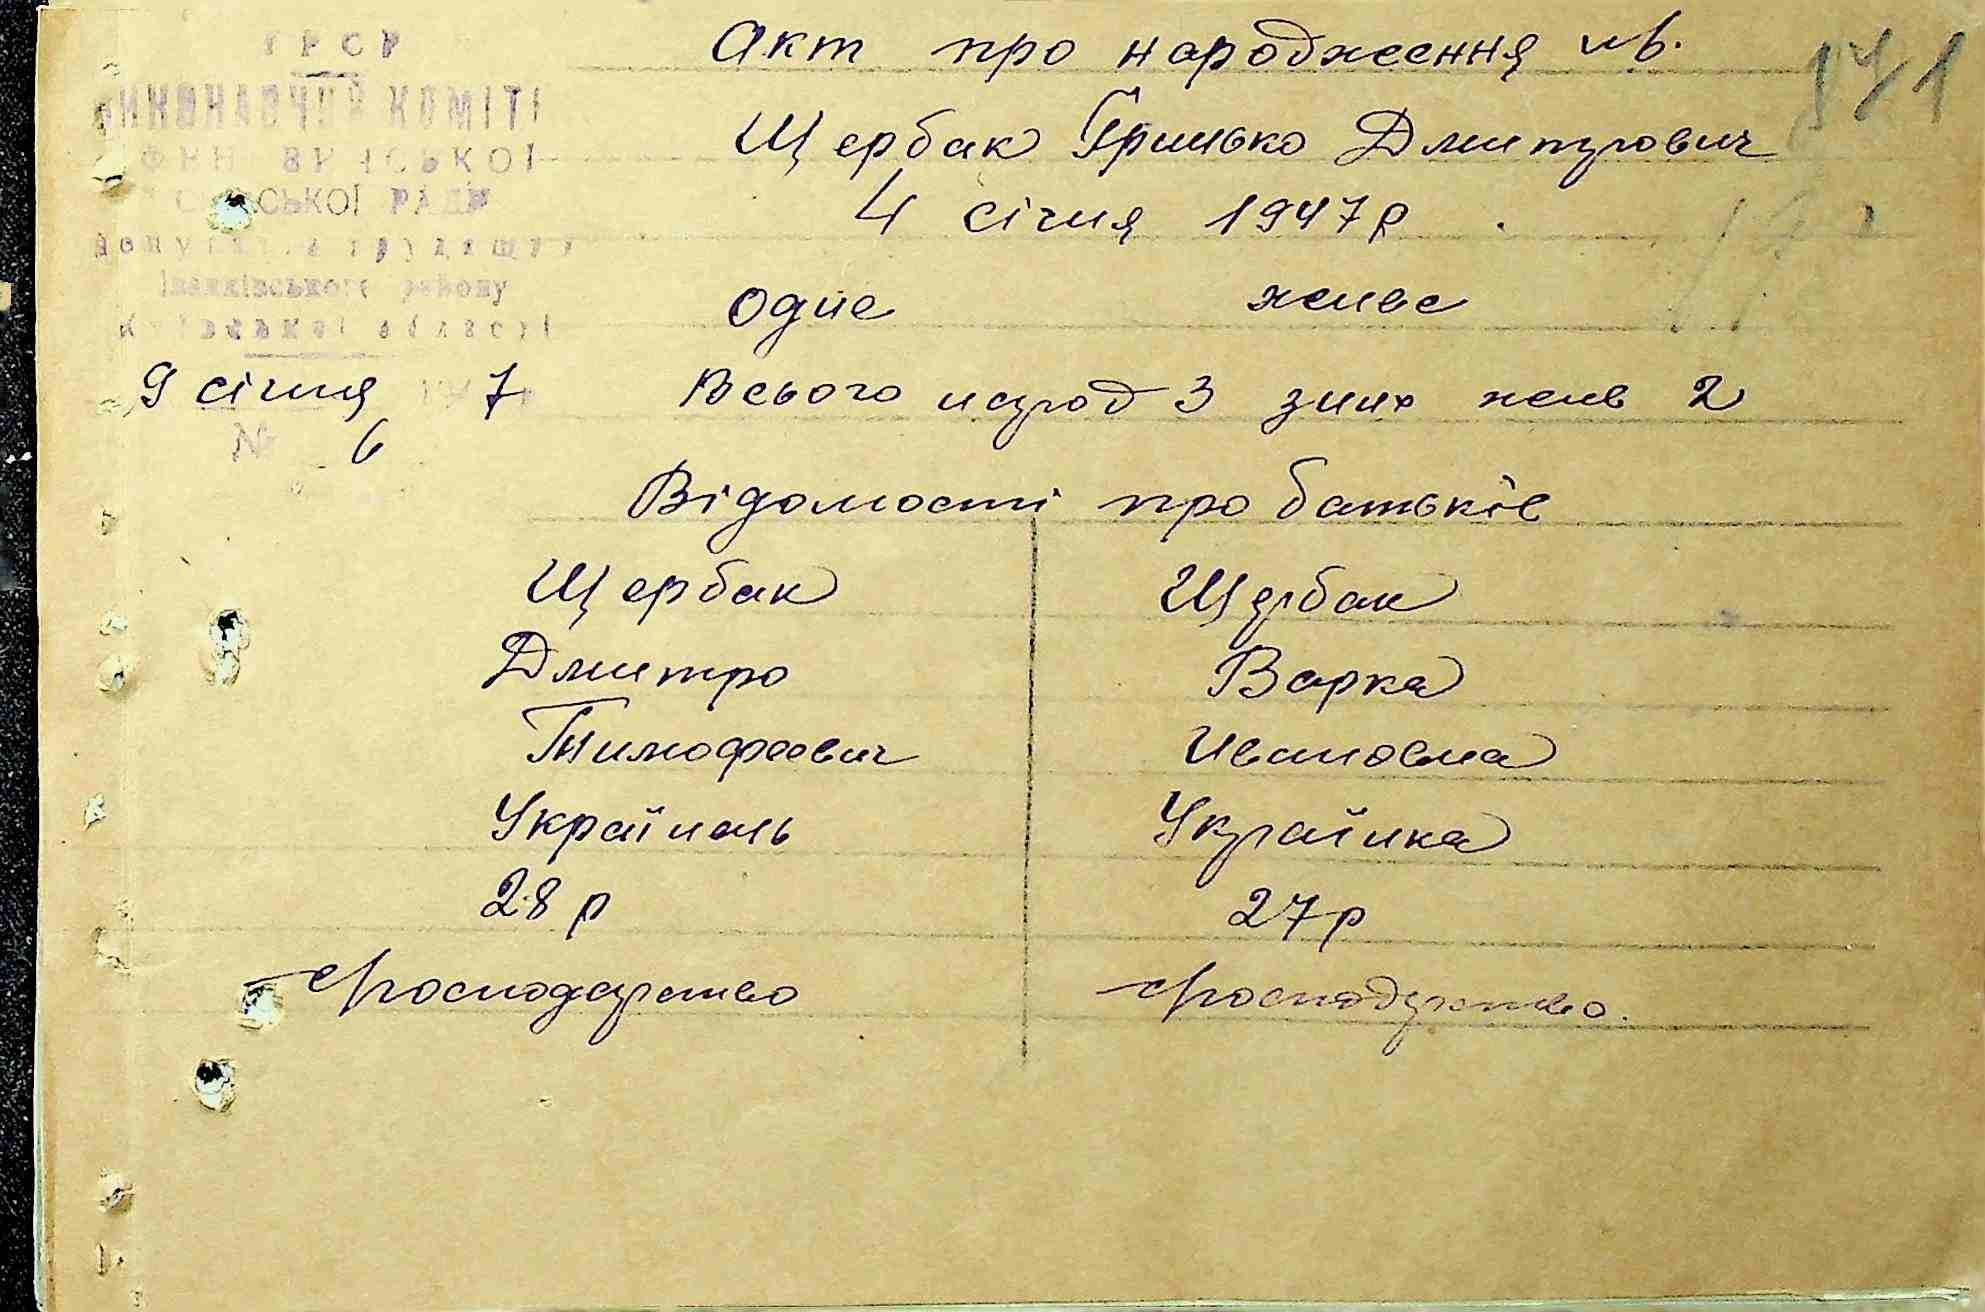 УРСР
ВИКОНАВЧИЙ КОМІТЕ
СЬКОЇ РАДИ
Іванківського району
Київської області
9 січня 194 7
№ 6
Акт про народження № 6.
Щербак Гринько Дмитрович
4 січня 1947 р
одне живе
Всього народ 3 з них жив 2
Відомості про батьків
Щербак Щербак
Дмитро Варка
Тимофеевич Ивановна
Українець Українка
28 р 27 р
господарство господарство.
171